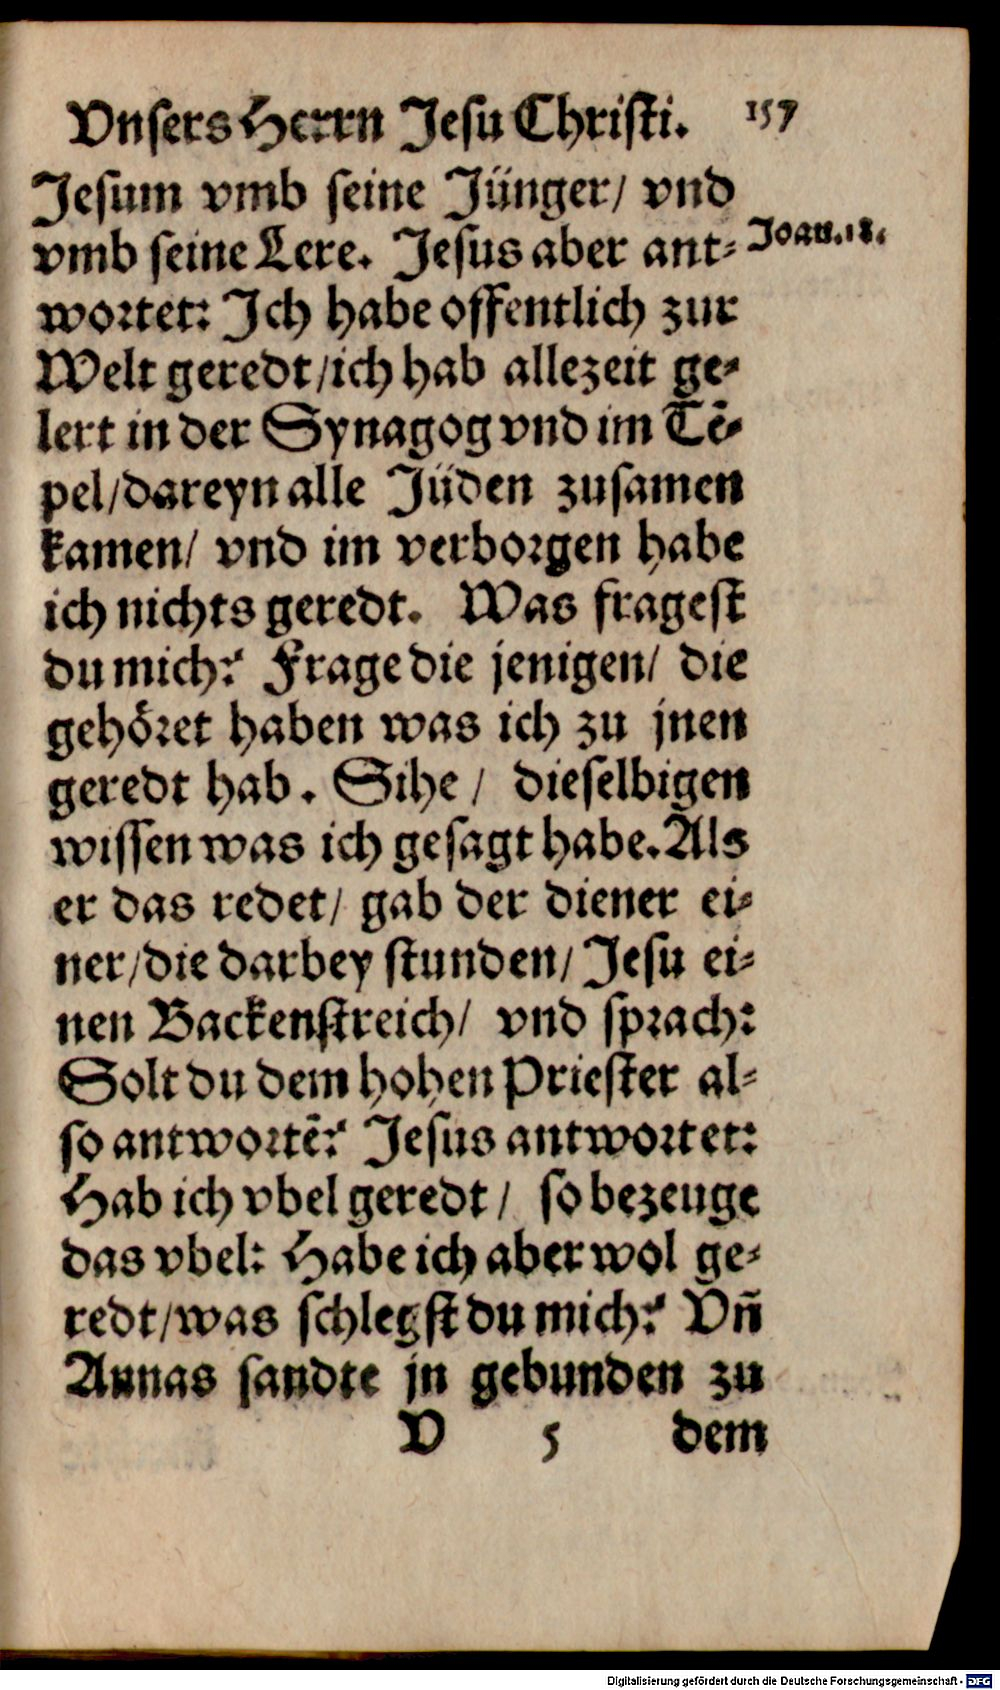 Vnsers Herrn Jesu Christi. 157
Jesum vmb seine Jünger/ vnd
vmb seine Lere. Jesus aber ant- Joan. 18.
wortet: Ich habe offentlich zur
Welt geredt/ich hab allezeit ge-
lert in der Synagog vnd im Tē-
pel/dareyn alle Jüden zusamen
kamen/ vnd im verborgen habe
ich nichts geredt. Was fragest
du mich? Frage die jenigen/ die
gehöret haben was ich zu jnen
geredt hab. Sihe/ dieselbigen
wissen was ich gesagt habe. Als
er das redet/ gab der diener ei-
ner/die darbey stunden/ Jesu ei-
nen Backenstreich/ vnd sprach:
Solt du dem hohen Priester al-
so antwortē? Jesus antwortet:
Hab ich vbel geredt/ so bezeuge
das vbel: Habe ich aber wol ge-
redt/was schlegst du mich? Vn̄
Annas sandte jn gebunden zu
V 5 dem
Digitalisierung gefördert durch die Deutsche Forschungsgemeinschaft - DFG